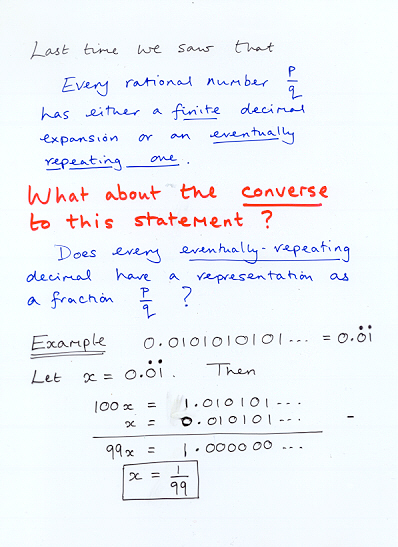 Last time we saw that
Every rational number p/q
has either a finite decimal
expansion or an eventually
repeating one.
What about the converse
to this statement ?
Does every eventually-repeating
decimal have a representation as
a fraction p/q ?
Example 0.0101010101... = 0.0̈1̈
Let x = 0.0̇1̇. Then
100x = 1.010101---
x = 0.010101--- −
99x = 1.000000...
x = 1/99